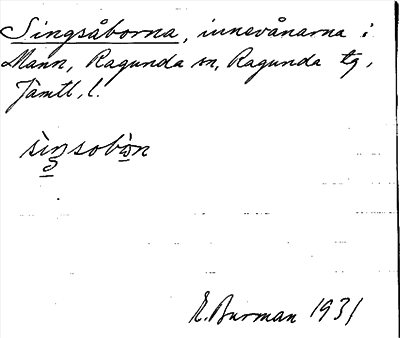 Singsåborna, innevånarna i
Mann, Ragunda sn, Ragunda tg,
Jämtl. l.
sìŋsobòn
E. Burman 1931